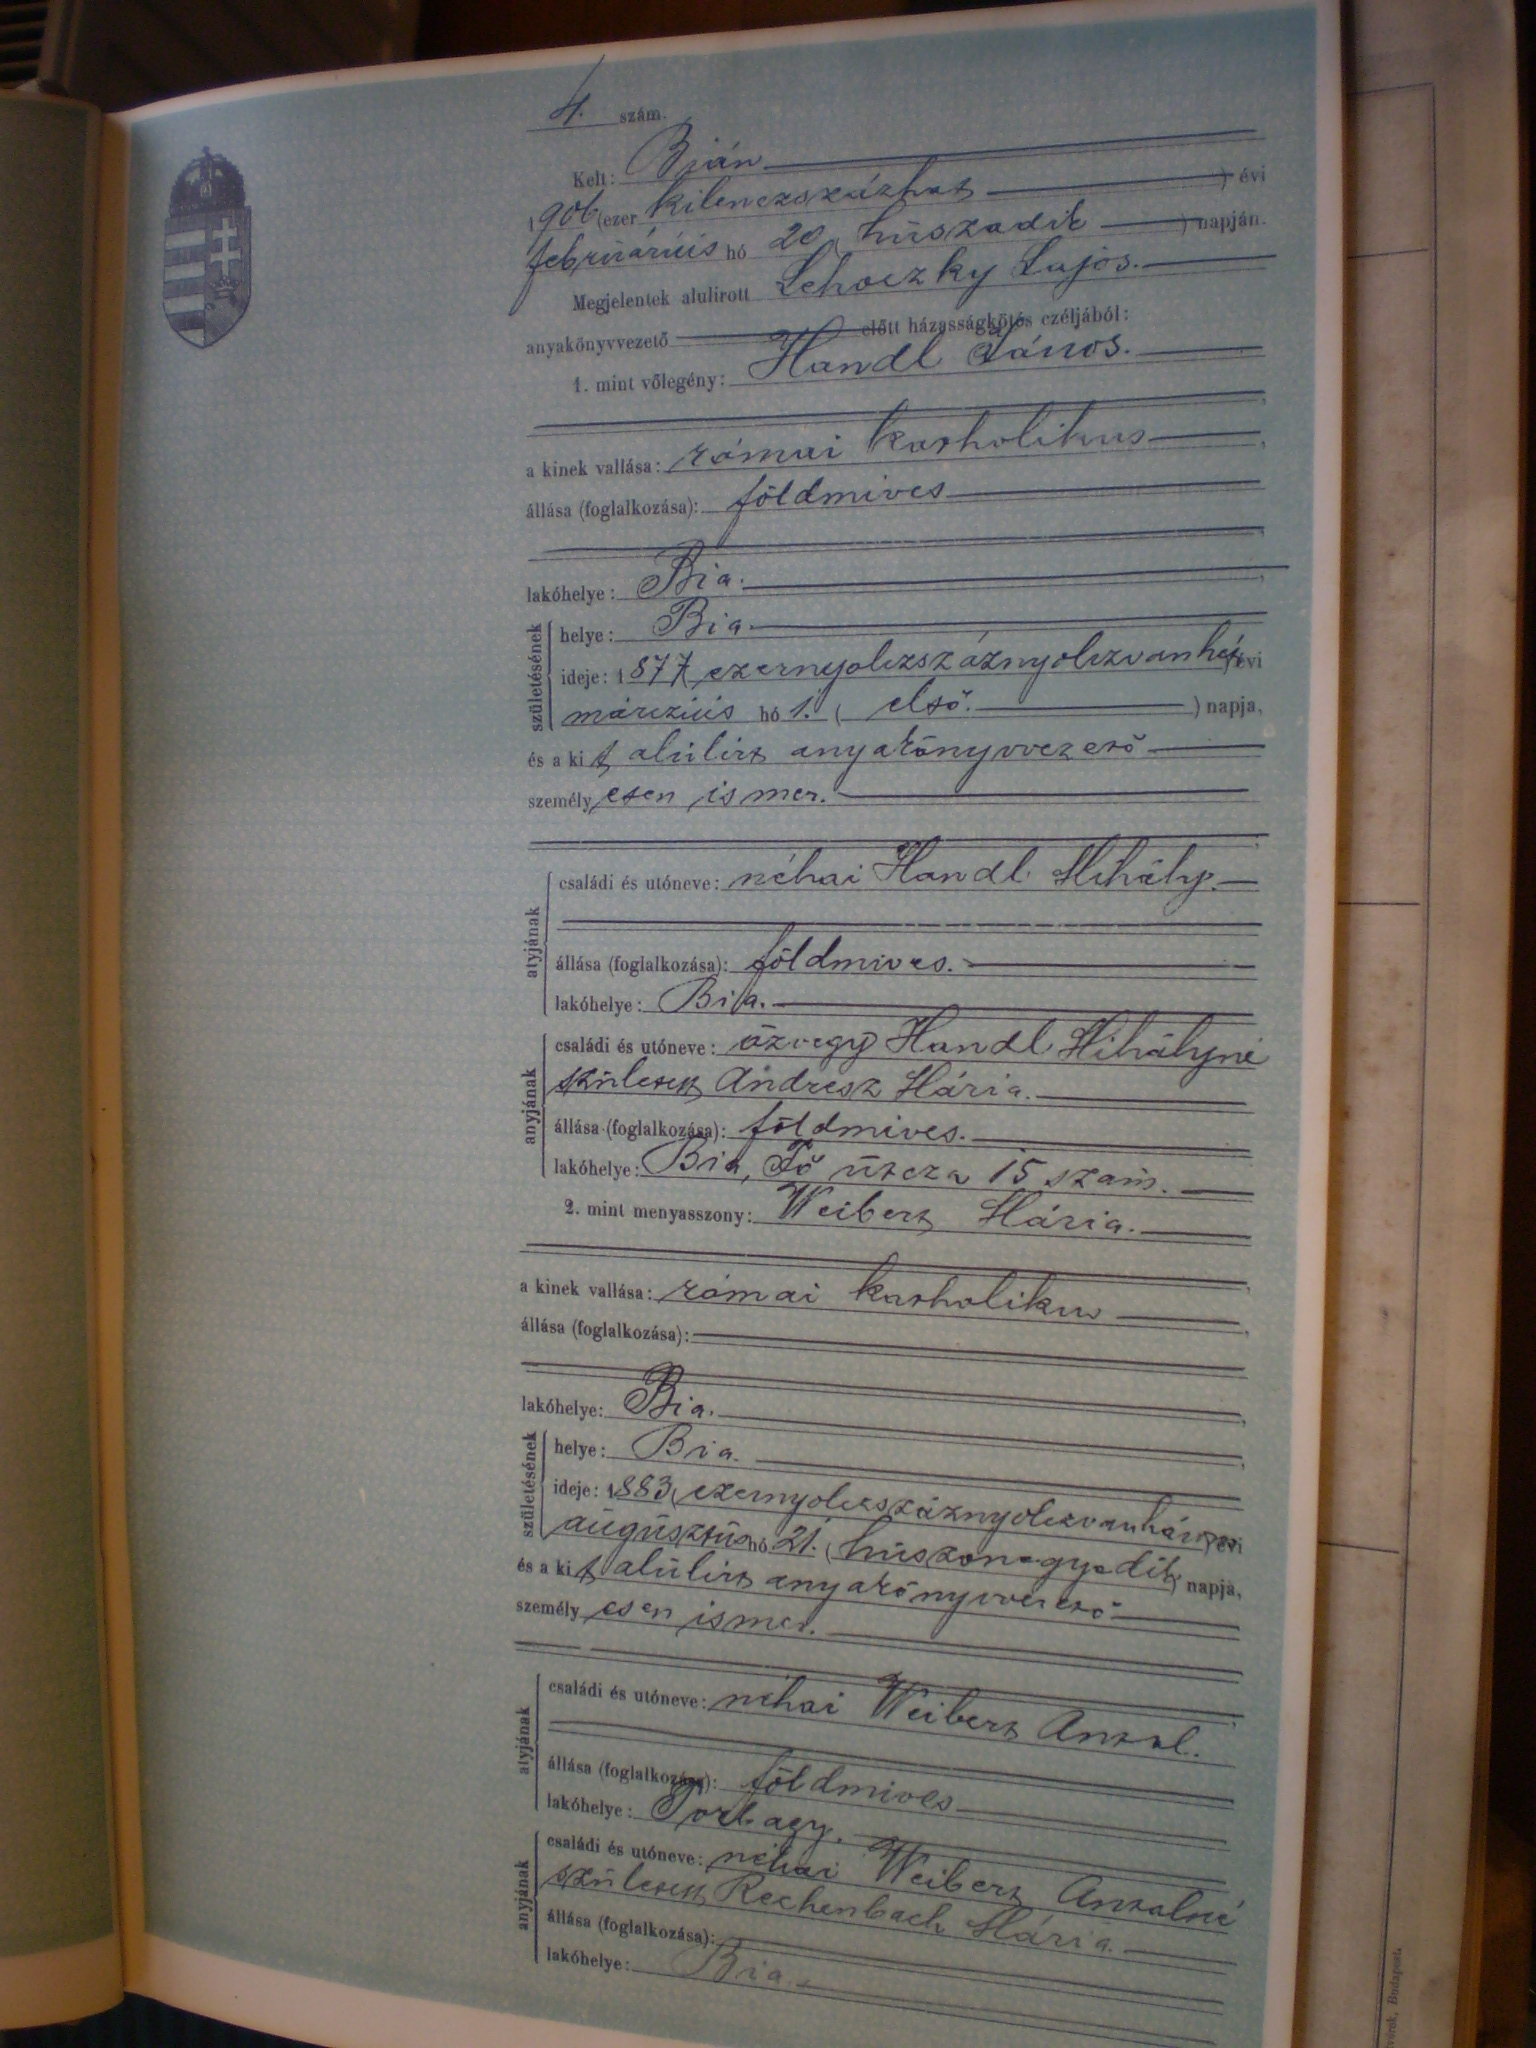 4. szám.
Kelt: Bián
1906 (ezer kilenczszázhat ) évi
februáŕiús hó 20 (húszadik ) napján.
Megjelentek alulirott Lehoczky Lajos.
anyakönyvvezető előtt házasságkötés czéljából:
1. mint vőlegény: Handl János.
a kinek vallása: római katholikus
állása (foglalkozása): földmives
lakóhelye: Bia.
születésének
helye: Bia
ideje: 1877 (ezernyolczszáznyolczvanhét) évi
márczius hó 1. (első. ) napja,
és a kit alúlirt anyakönyvvezető
személyesen ismer.
atyjának
családi és utóneve: néhai Handl Mihály.
állása (foglalkozása): földmives.
lakóhelye: Bia.
anyjának
családi és utóneve: özvegy Handl Mihályné
született Andresz Mária.
állása (foglalkozása): földmives.
lakóhelye: Bia, Fő útcza 15 szám.
2. mint menyasszony: Weibert Mária.
a kinek vallása: római katholikus
állása (foglalkozása):
lakóhelye: Bia.
születésének
helye: Bia.
ideje: 1883 (ezernyolczszáznyolczvanhárom) évi
augúsztús hó 21. (húszonegyedik) napja,
és a kit alúlirt anyakönyvvezető
személyesen ismer.
atyjának
családi és utóneve: néhai Weibert Antal.
állása (foglalkozása): földmives
lakóhelye: Torbagy.
anyjának
családi és utóneve: néhai Weibert Antalné
született Rechenbach Mária.
állása (foglalkozása):
lakóhelye: Bia.
Budapest.